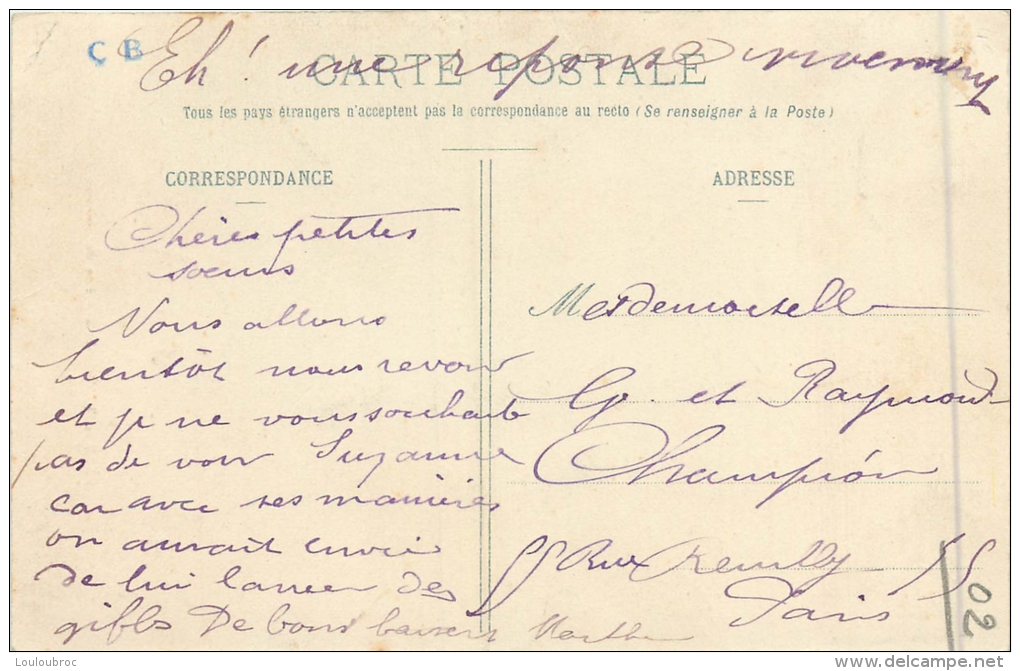 C B
Eh! une réponse
CARTE POSTALE
Tous les pays étrangers n'acceptent pas la correspondance au recto (Se renseigner à la Poste)
CORRESPONDANCE
ADRESSE
Chères petites
soeurs
Nous allons
bientôt nous revoir
et je ne vous souhaite
pas de voir Suzanne
car avec ses manières
on aurait envie
de lui lancer des
giffls De bons baisers Marthe
Mesdemoiselle
G. et Raymond
Champion
55 Rue Reuilly 55
Paris
02
Louloubroc
www.delcampe.net